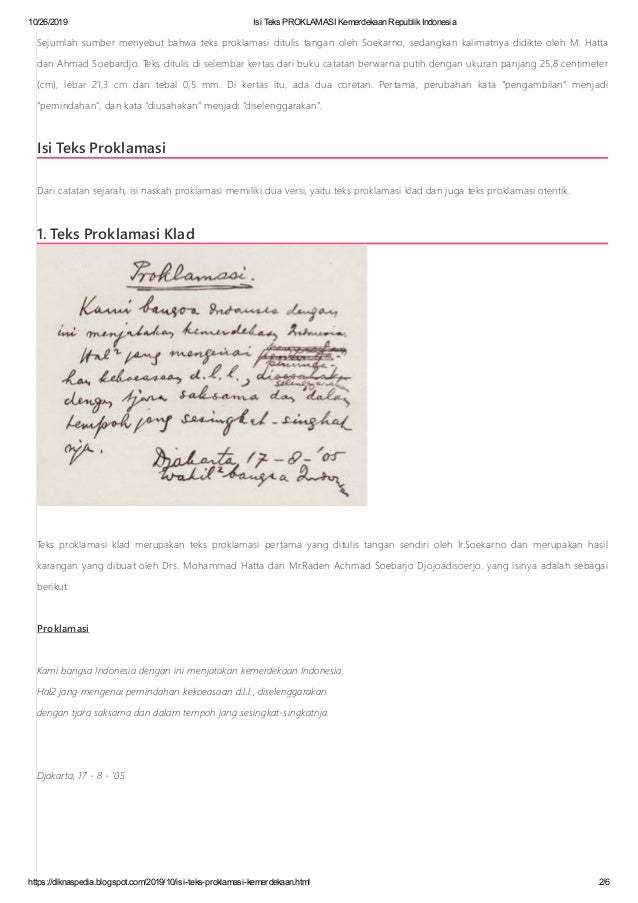 10/26/2019 Isi Teks PROKLAMASI Kemerdekaan Republik Indonesia
Sejumlah sumber menyebut bahwa teks proklamasi ditulis tangan oleh Soekarno, sedangkan kalimatnya didikte oleh M. Hatta
dan Ahmad Soebardjo. Teks ditulis di selembar kertas dari buku catatan berwarna putih dengan ukuran panjang 25,8 centimeter
(cm), lebar 21,3 cm dan tebal 0,5 mm. Di kertas itu, ada dua coretan. Pertama, perubahan kata “pengambilan” menjadi
“pemindahan”, dan kata “diusahakan” menjadi “diselenggarakan”.
Isi Teks Proklamasi
Dari catatan sejarah, isi naskah proklamasi memiliki dua versi, yaitu teks proklamasi klad dan juga teks proklamasi otentik.
1. Teks Proklamasi Klad
Proklamasi.
Kami bangsa Indonesia dengan
ini menjatakan kemerdekaan Indonesia.
Hal² jang mengenai
peminda-
han kekoeasaan d.l.l., diselenggarakan
dengan tjara saksama dan dalam
tempoh jang sesingkat-singkat
nja.
Djakarta, 17-8-'05
Wakil² bangsa Indon
Teks proklamasi klad merupakan teks proklamasi pertama yang ditulis tangan sendiri oleh Ir.Soekarno dan merupakan hasil
karangan yang dibuat oleh Drs. Mohammad Hatta dan Mr.Raden Achmad Soebarjo Djojoadisoerjo. yang isinya adalah sebagai
berikut:
Proklamasi
Kami bangsa Indonesia dengan ini menjatakan kemerdekaan Indonesia.
Hal2 jang mengenai pemindahan kekoeasaan d.l.l., diselenggarakan
dengan tjara saksama dan dalam tempoh jang sesingkat-singkatnja.
Djakarta, 17 - 8 - '05
https://diknaspedia.blogspot.com/2019/10/isi-teks-proklamasi-kemerdekaan.html 2/6